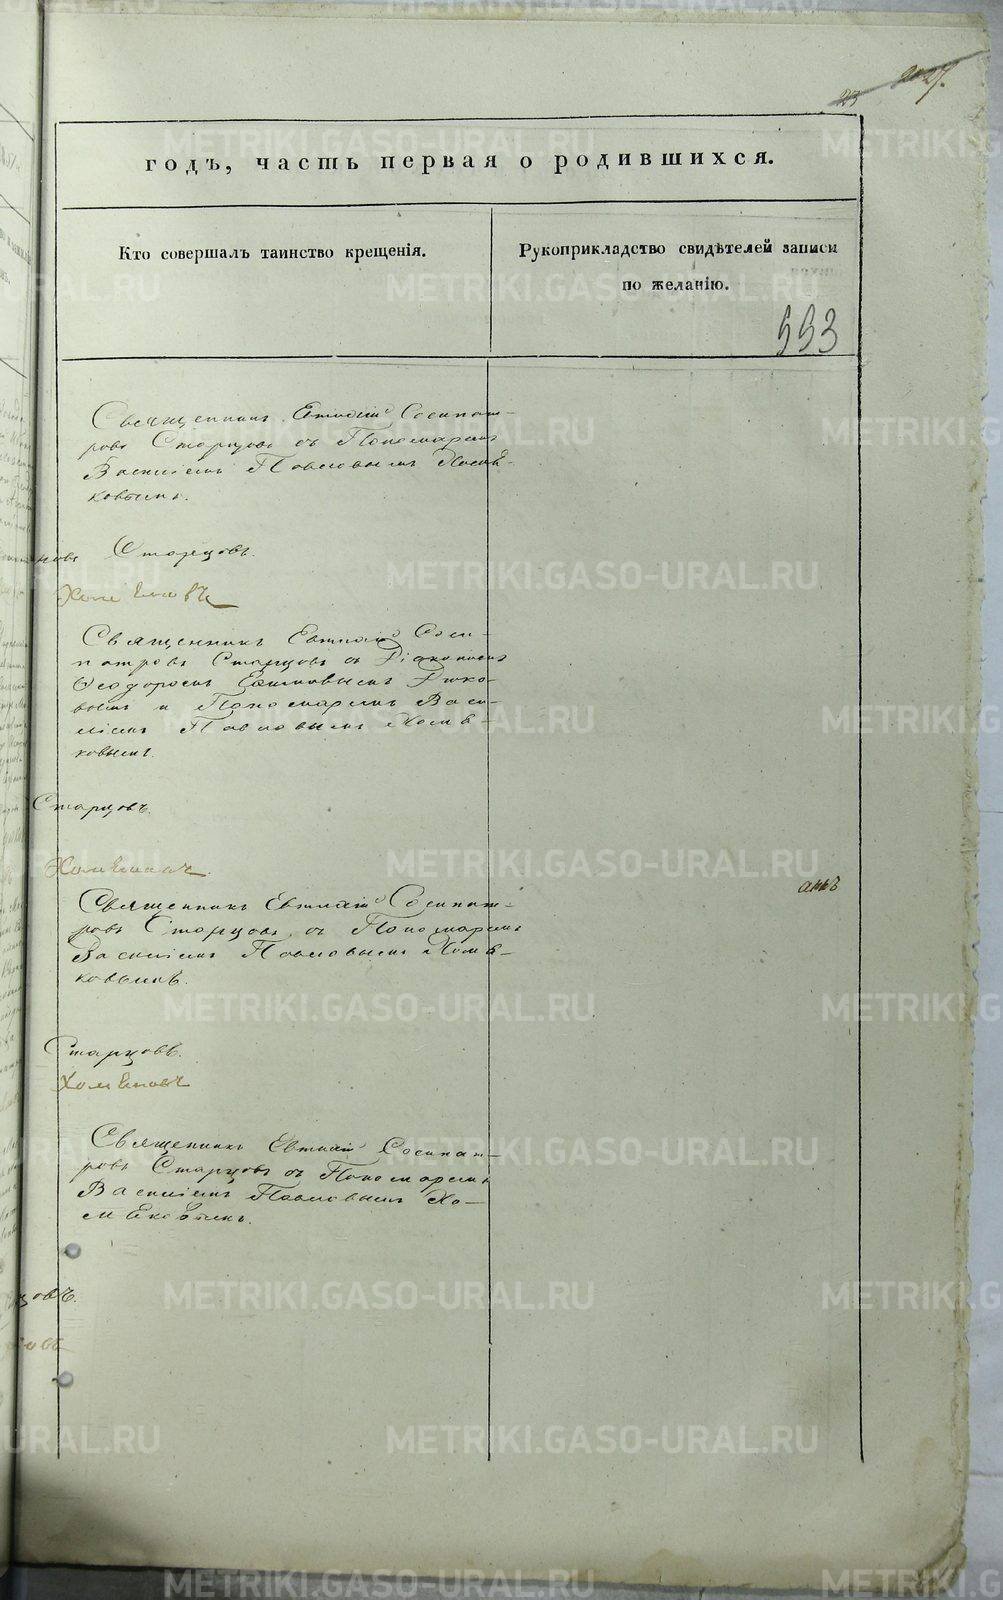 23 2027.
годъ, часть первая о родившихся.
Кто совершалъ таинство крещенія.
Рукоприкладство свидѣтелей записи
по желанію.
593
Священникъ Евтихій Сосипат-
ровъ Старцовъ съ Пономаремъ
Василіемъ Павловымъ Хомя-
ковымъ.
новъ Старцовъ.
Священникъ Евтихій Соси-
патровъ Старцовъ съ Діакономъ
Ѳеодоромъ
вымъ и Пономаремъ Васи-
ліемъ Павловымъ
ковымъ.
Старцовъ.
Священникъ Евтихій Сосипат-
ровъ Старцовъ съ Пономаремъ
Василіемъ Павловымъ
ковымъ.
Старцовъ.
Священникъ Евтихій Сосипат-
ровъ Старцовъ съ Пономаремъ
Василіемъ Павловымъ Хо-
цовъ.
METRIKI.GASO-URAL.RU